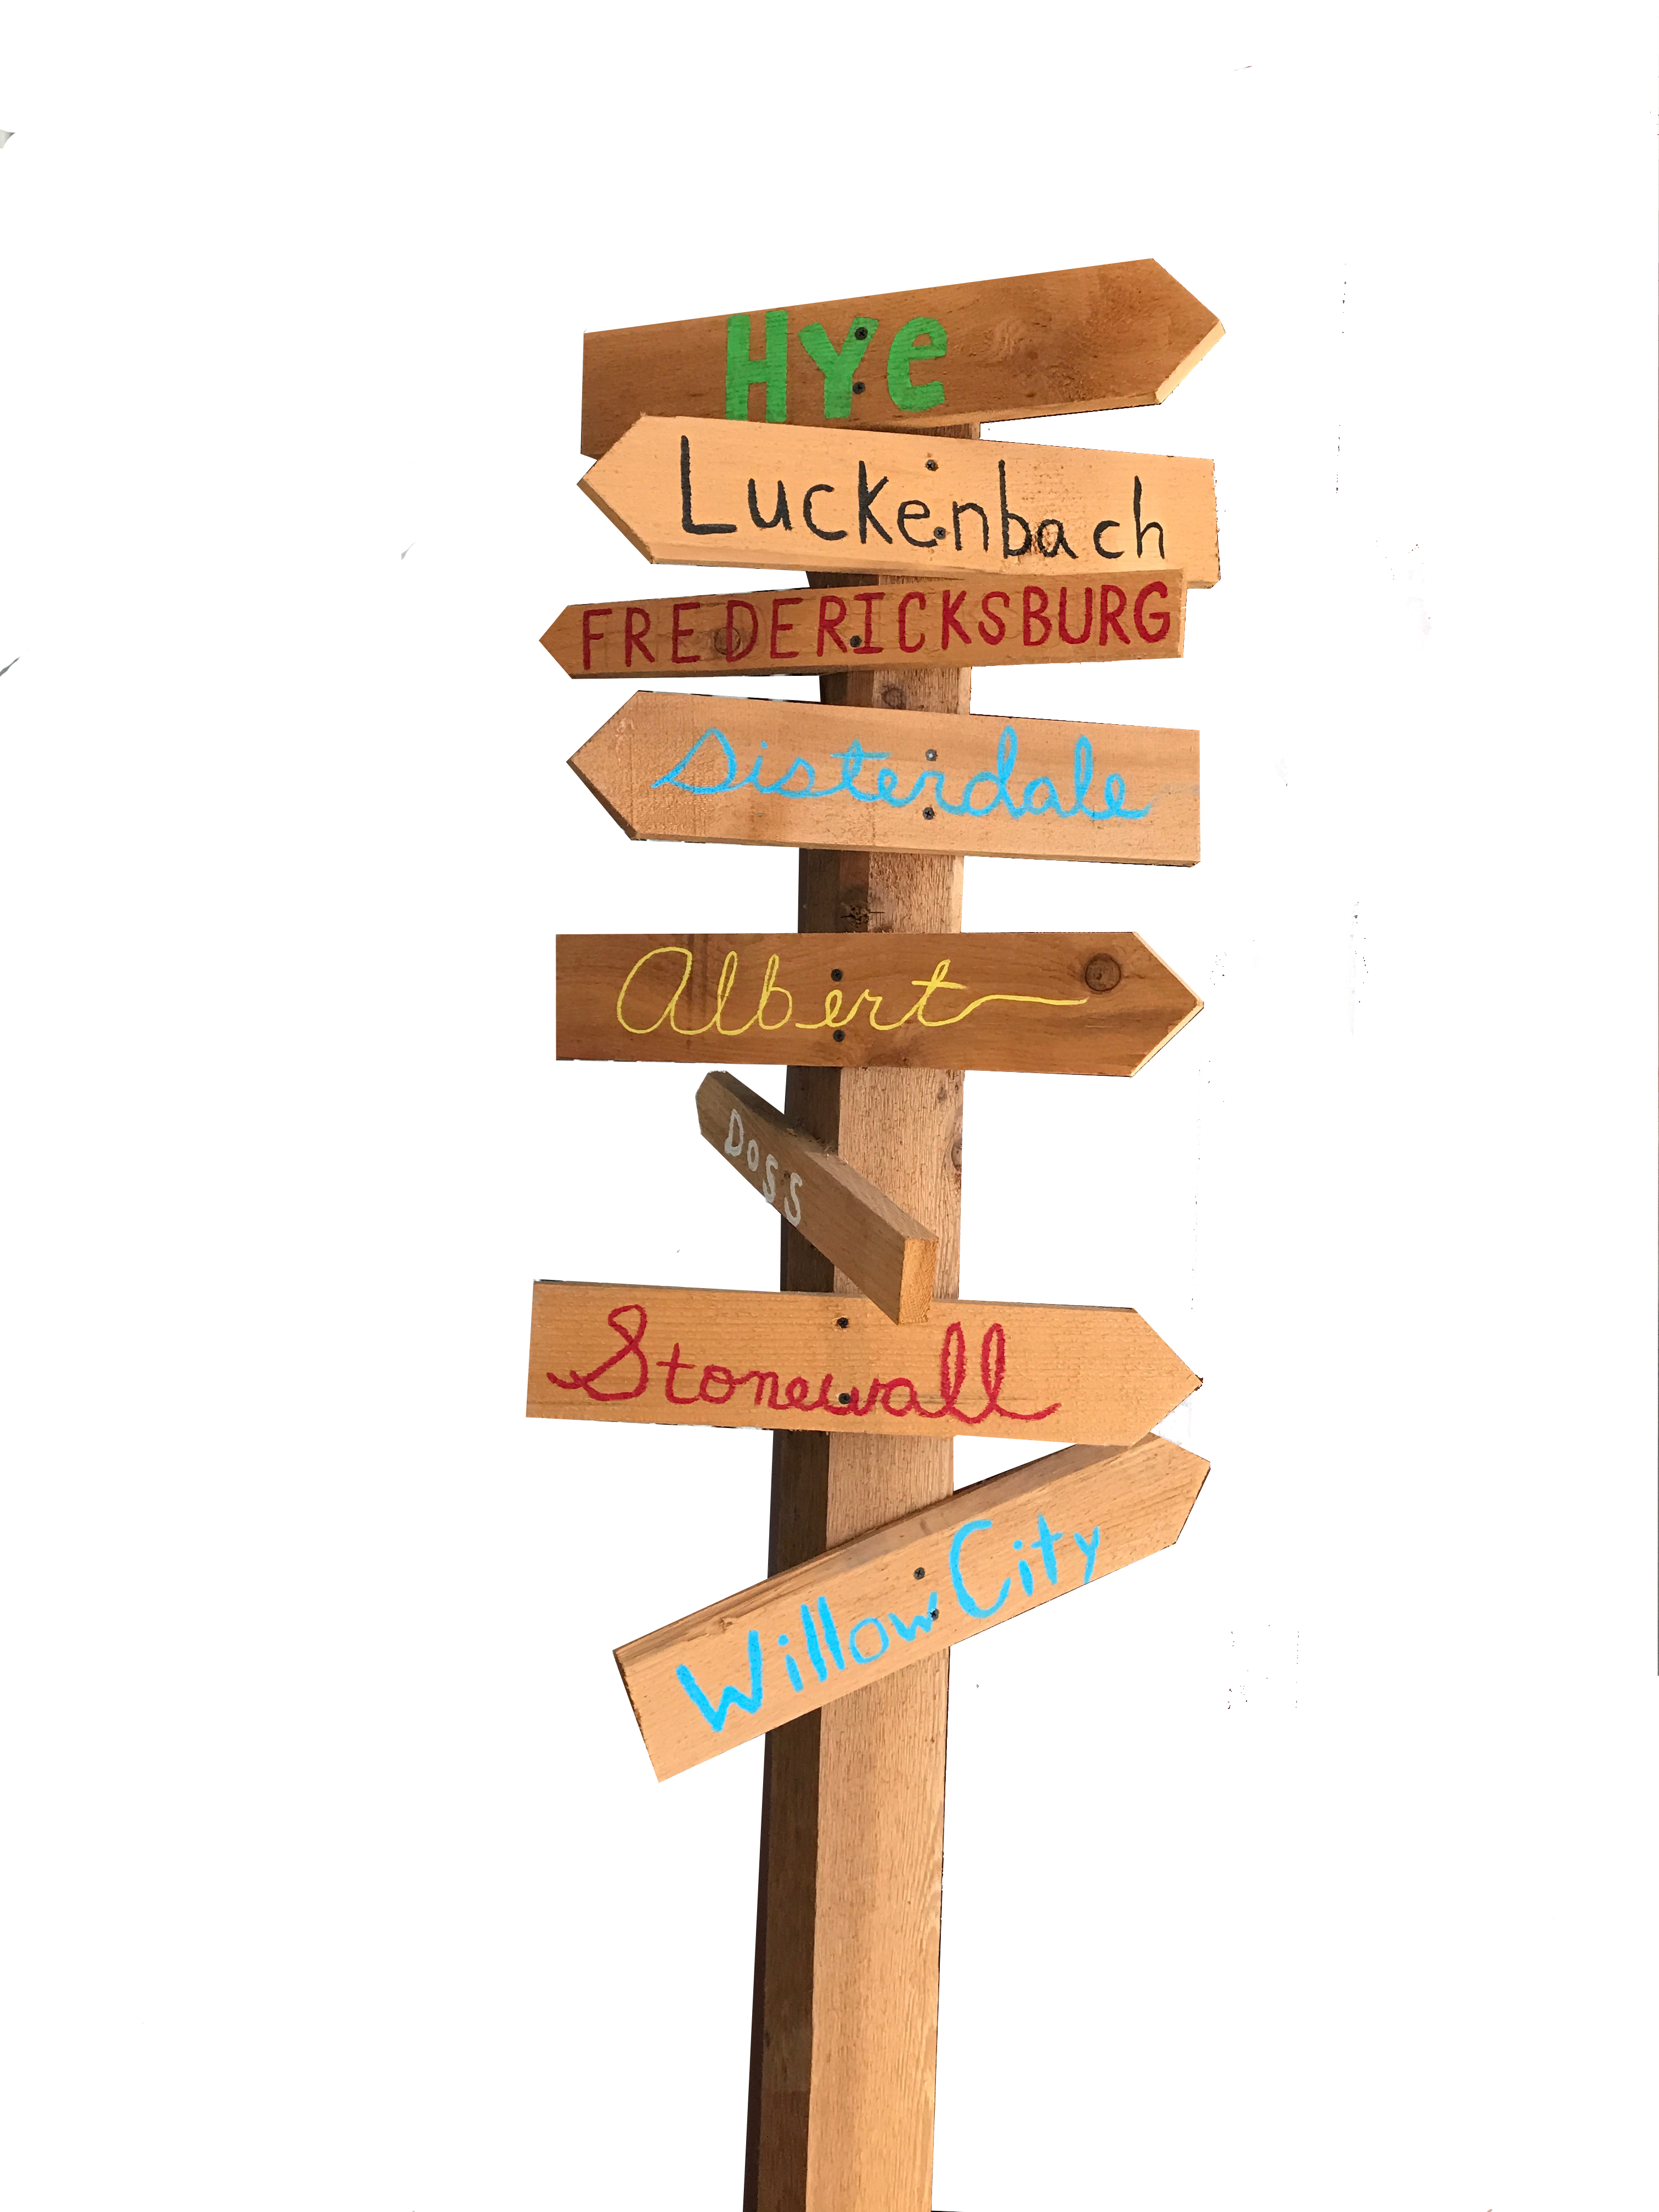 Hye
Luckenbach
FREDERICKSBURG
Sisterdale
Albert
Doss
Stonewall
Willow City